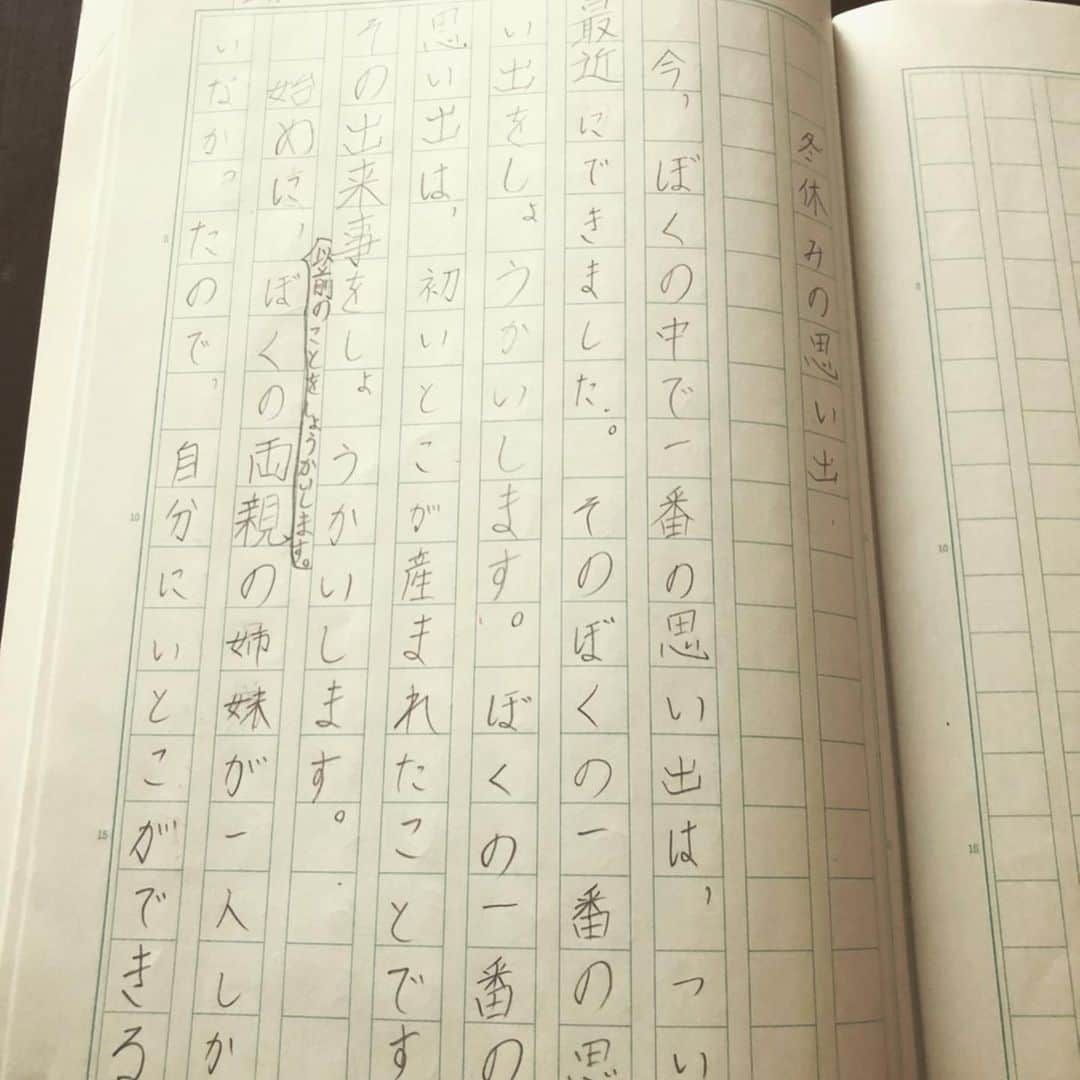 冬休みの思い出
今，ぼくの中で一番の思い出は，つい
最近にできました。そのぼくの一番の思
い出をしょうかいします。ぼくの一番の
思い出は，初いとこが産まれたことです
その出来事をしょうかいします。
以前のことをしょうかいします。
始めに，ぼくの両親の姉妹が一人しか
いなかったので，自分にいとこができる
5
10
15
10
15